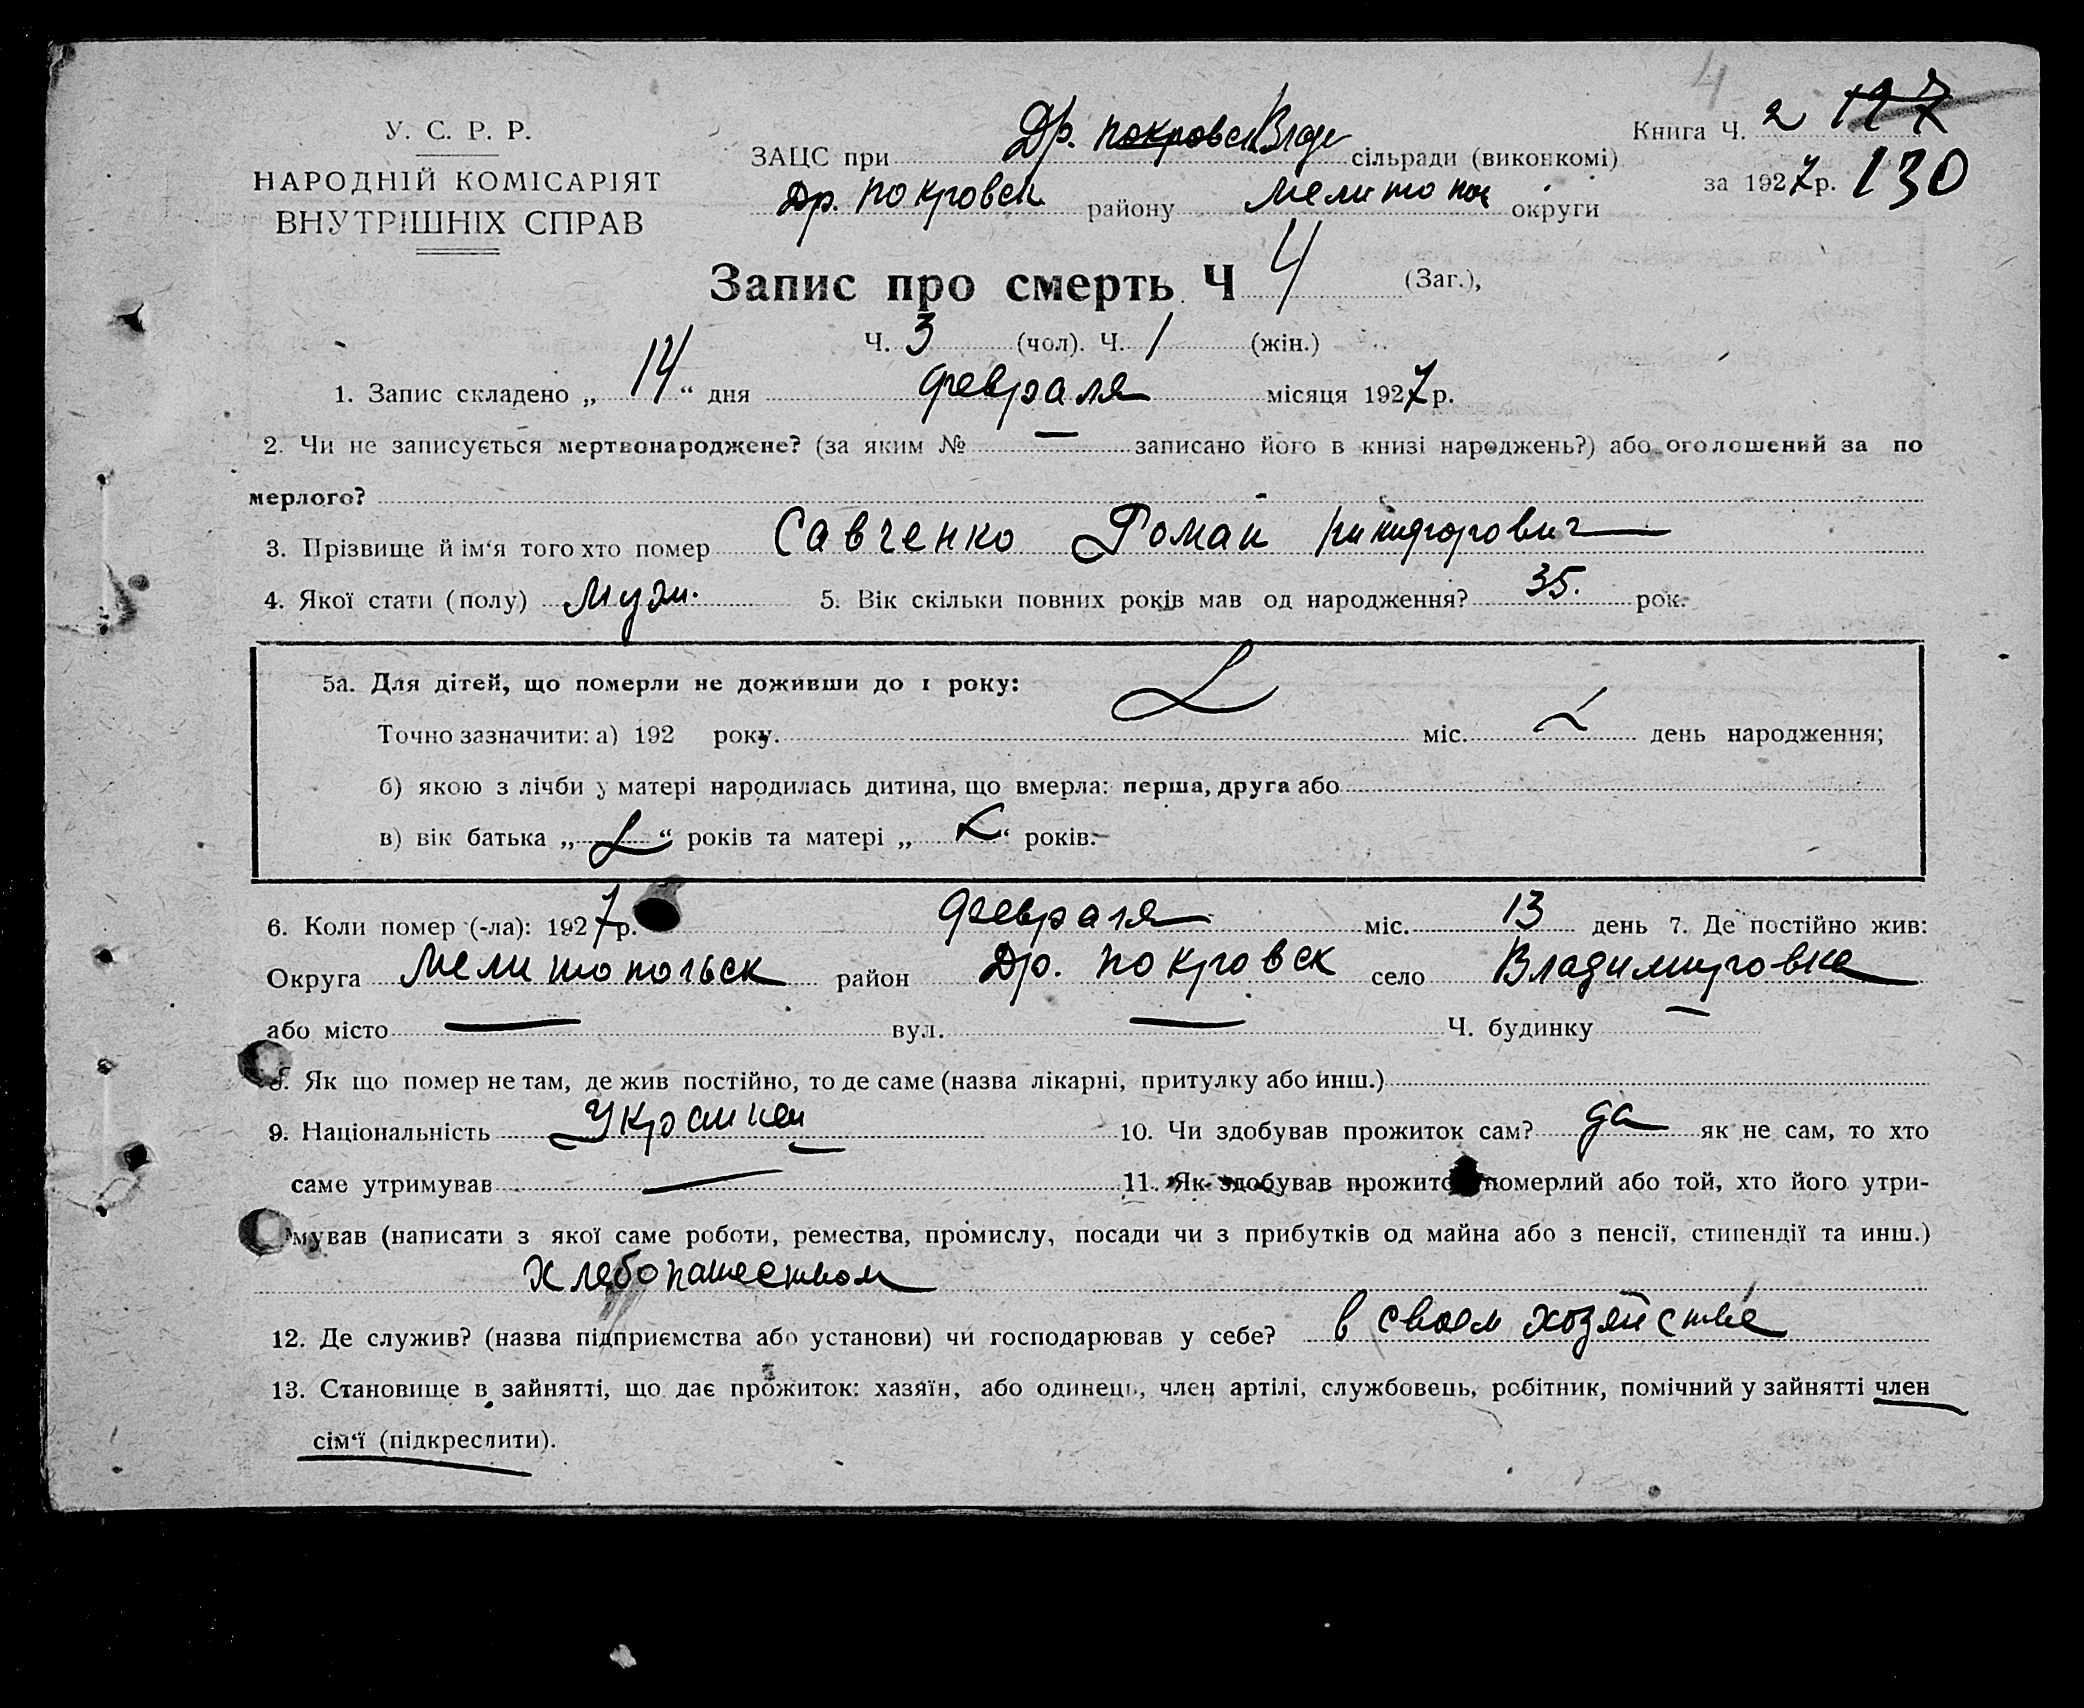 4
У. С. Р. Р.
НАРОДНІЙ КОМІСАРІЯТ
ВНУТРІШНІХ СПРАВ
ЗАЦС при Др. покровск Влад сільради (виконкомі)
Др. покровск району Мелитопол округи
Книга Ч. 2
за 1927 р. 130
Запис про смерть Ч 4 (Заг.),
Ч. 3 (чол). Ч. 1 (жін.)
1. Запис складено „ 14 “ дня февраля місяця 1927 р.
2. Чи не записується мертвонароджене? (за яким № — записано його в книзі народжень?) або оголошений за по
мерлого?
3. Прізвище й ім‘я того хто помер Савченко Роман Никифорович
4. Якої стати (полу) Муж. 5. Вік скільки повних років мав од народження? 35. рок.
5а. Для дітей, що померли не доживши до 1 року:
Точно зазначити: а) 192 року. міс. день народження;
б) якою з лічби у матері народилась дитина, що вмерла: перша, друга або
в) вік батька „ “ років та матері „ “ років.
6. Коли помер (-ла): 1927 р. февраля міс. 13 день 7. Де постійно жив:
Округа Мелитопольск район Др. покровск село Владимировка
або місто — вул. — Ч. будинку —
8. Як що помер не там, де жив постійно, то де саме (назва лікарні, притулку або инш.)
9. Національність Украинец 10. Чи здобував прожиток сам? да як не сам, то хто
саме утримував — 11. Як здобував прожиток померлий або той, хто його утри-
мував (написати з якої саме роботи, ремества, промислу, посади чи з прибутків од майна або з пенсії, стипендії та инш.)
Хлебопашеством
12. Де служив? (назва підприємства або установи) чи господарював у себе? в своем хозяйстве
13. Становище в зайнятті, що дає прожиток: хазяїн, або одинець, член артілі, службовець, робітник, помічний у зайнятті член
сім‘ї (підкреслити).